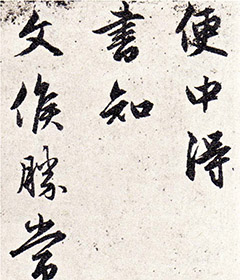 便中得
書知
文候勝常